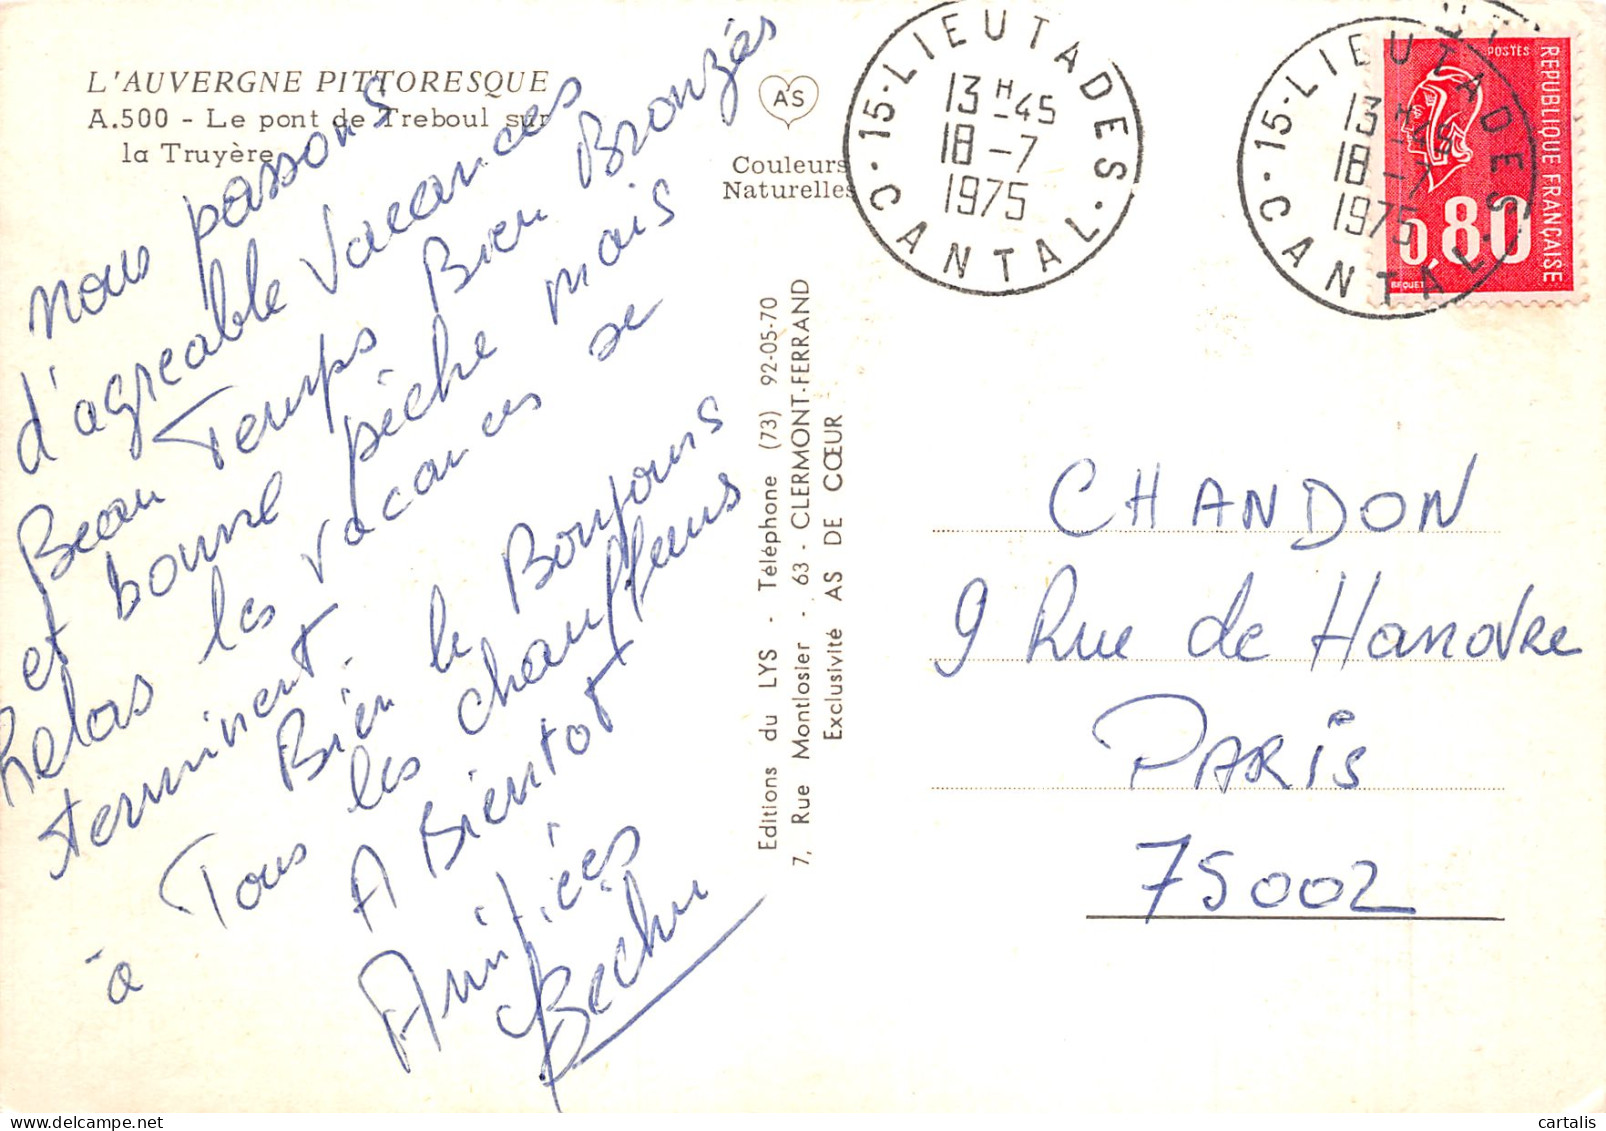 L'AUVERGNE PITTORESQUE
A.500 - Le pont de Treboul sur
la Truyère
AS
Couleurs
Naturelles
nous passons
d'agreable Vacances
Beau Temps Bien Bronzés
et bonne pêche mais
helas les vacances se
terminent.
Bien le Bonjours
à Tous les chauffeurs
A Bientot
Amitiées
Bechu
Editions du LYS - Téléphone (73) 92-05-70
7, Rue Montlosier - 63 - CLERMONT-FERRAND
Exclusivité AS DE CŒUR
15-LIEUTADES
13H-45
18-7
1975
CANTAL
15-LIEUTADES
13H-45
18-7
1975
CANTAL
POSTES
REPUBLIQUE FRANÇAISE
0,80
BEQUET
CHANDON
9 Rue de Hanovre
PARIS
75002
cartalis